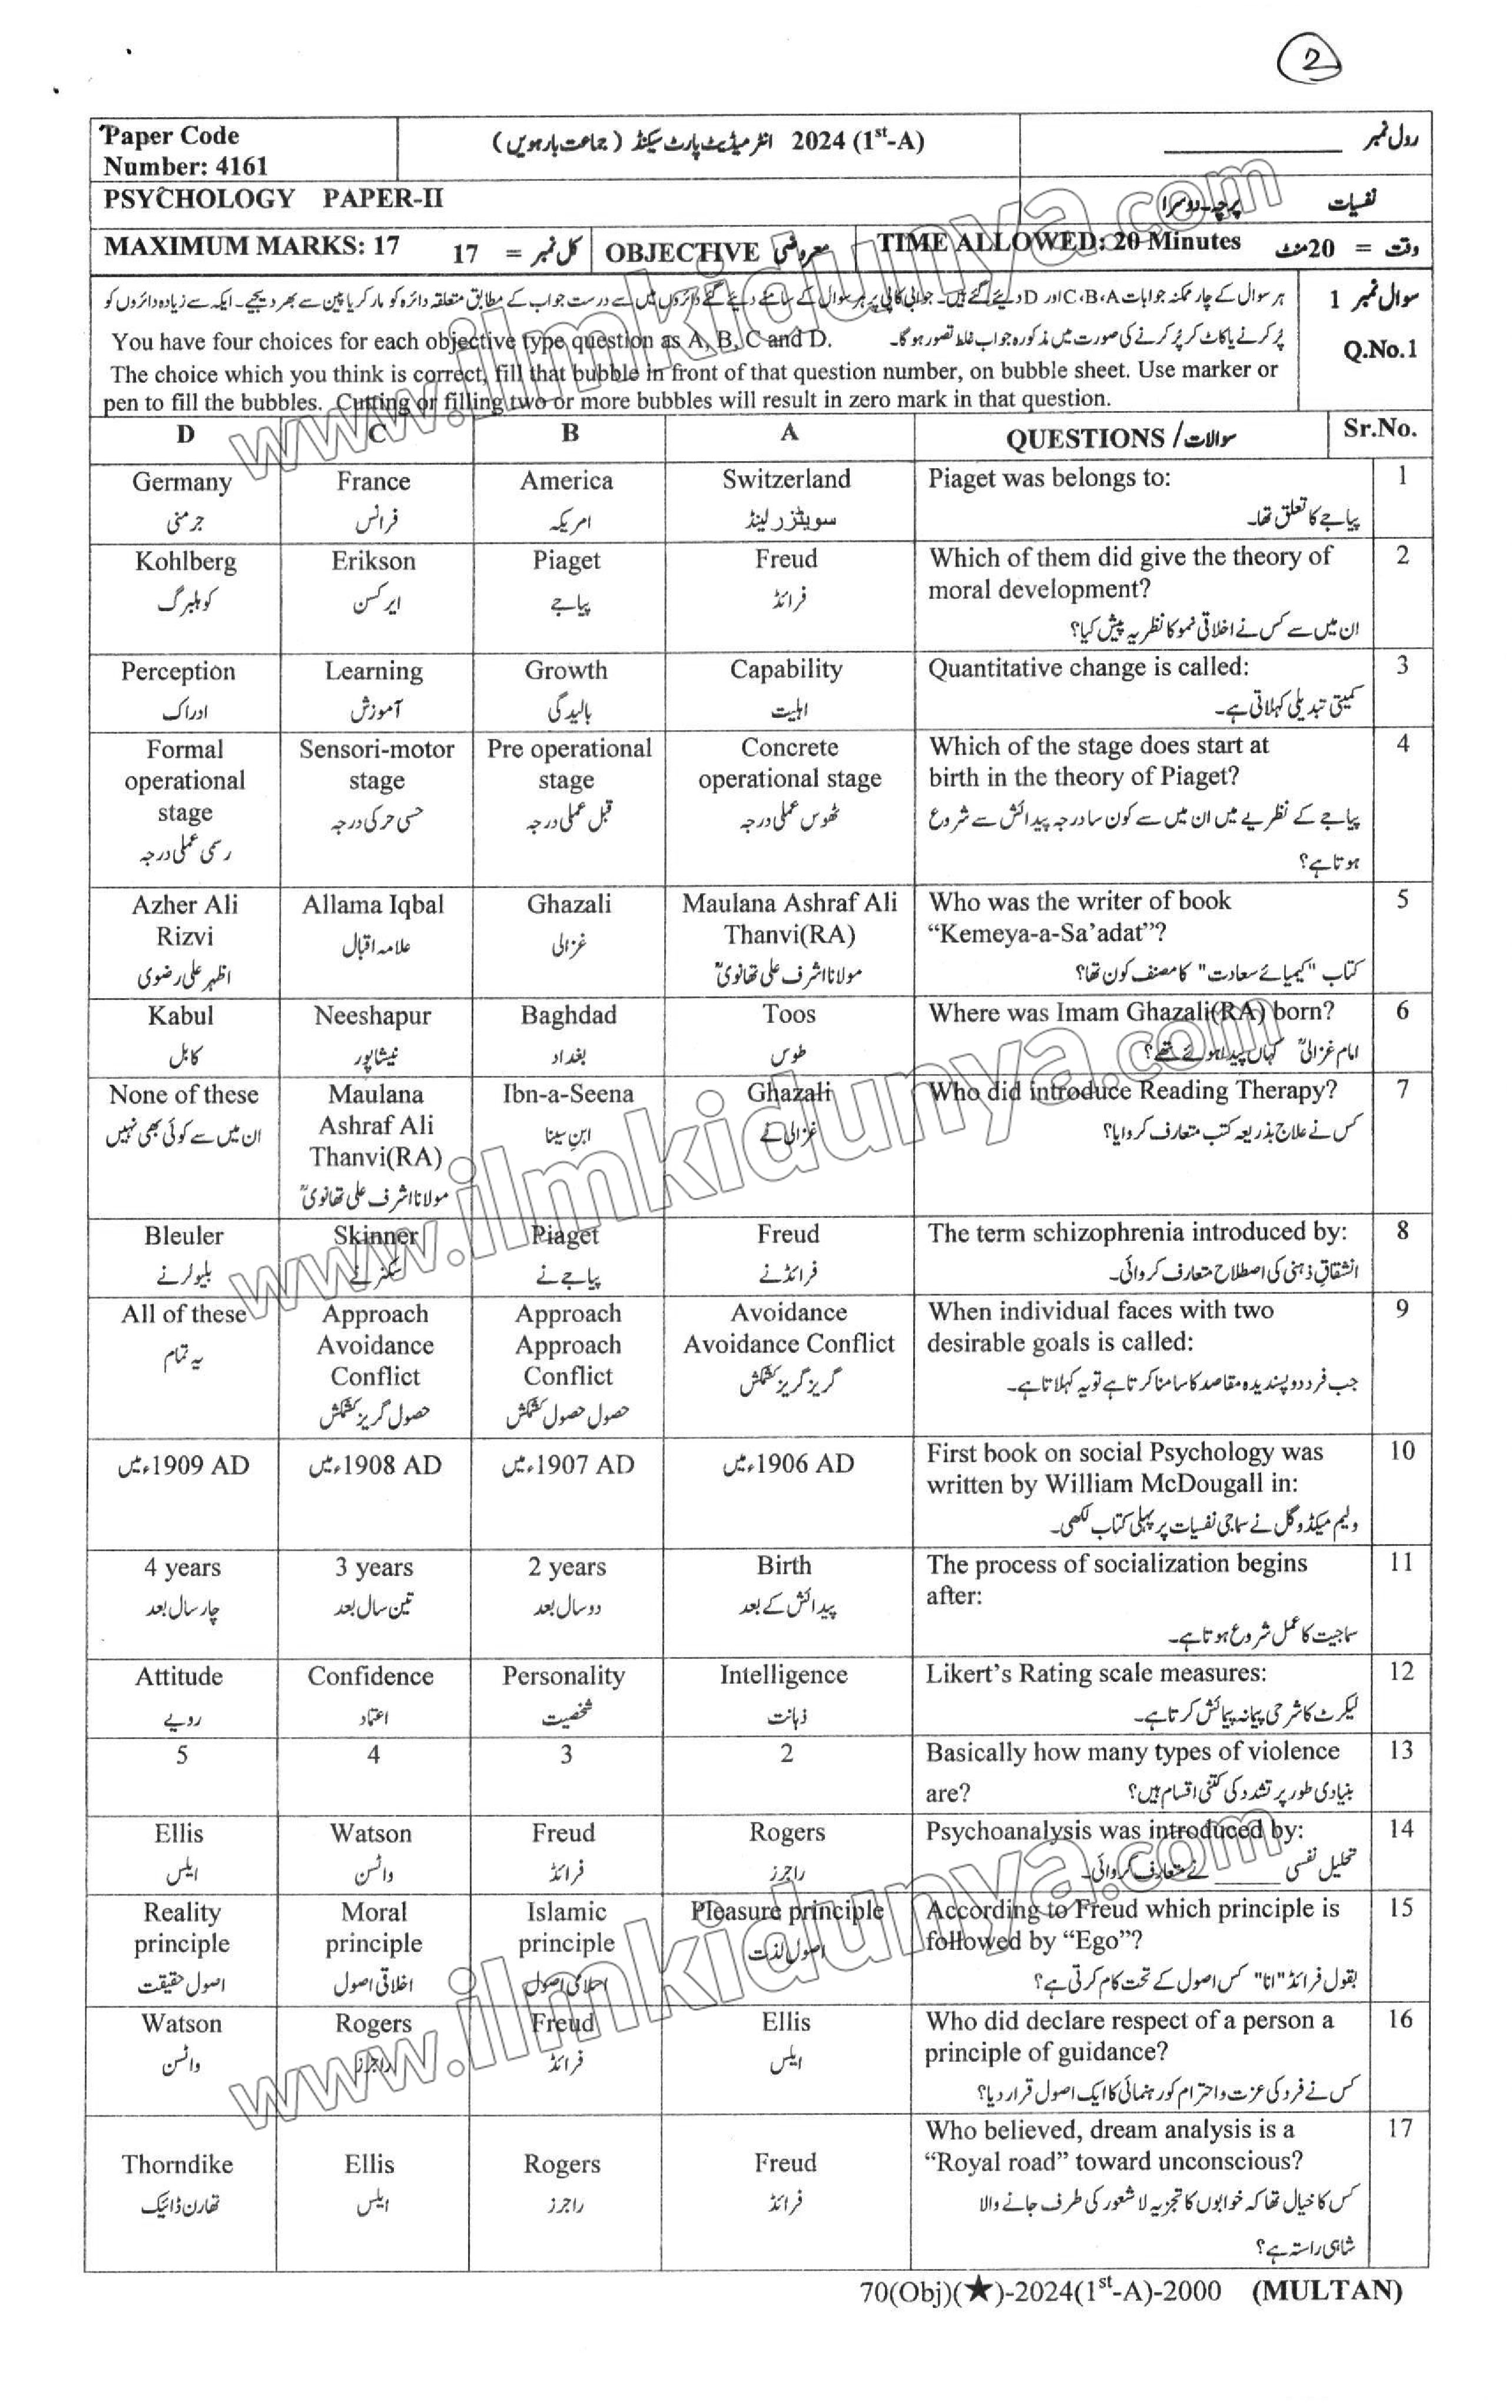 2
Paper Code
Number: 4161
2024 (1st-A) انٹرمیڈیٹ پارٹ سیکنڈ (جماعت بارہویں)
رول نمبر ____________
PSYCHOLOGY PAPER-II
نفسیات پرچہ۔دوسرا
MAXIMUM MARKS: 17 کل نمبر = 17 OBJECTIVE معروضی TIME ALLOWED: 20 Minutes وقت = 20منٹ
سوال نمبر 1 ہر سوال کے چار ممکنہ جوابات C،B،A اور D دیئے گئے ہیں۔ جوابی کاپی پر ہر سوال کے سامنے دیئے گئے دائروں میں سے درست جواب کے مطابق متعلقہ دائرہ کو مارکر یا پین سے بھر دیجیے۔ ایک سے زیادہ دائروں کو
Q.No.1 پُر کرنے یا کاٹ کر پُر کرنے کی صورت میں مذکورہ جواب غلط تصور ہوگا۔
You have four choices for each objective type question as A, B, C and D.
The choice which you think is correct, fill that bubble in front of that question number, on bubble sheet. Use marker or
pen to fill the bubbles. Cutting or filling two or more bubbles will result in zero mark in that question.
D C B A QUESTIONS / سوالات Sr.No.
Germany France America Switzerland Piaget was belongs to: 1
جرمنی فرانس امریکہ سویٹزرلینڈ پیاجے کا تعلق تھا۔
Kohlberg Erikson Piaget Freud Which of them did give the theory of 2
moral development?
کوہلبرگ ایرکسن پیاجے فرائڈ
ان میں سے کس نے اخلاقی نمو کا نظریہ پیش کیا؟
Perception Learning Growth Capability Quantitative change is called: 3
ادراک آموزش بالیدگی اہلیت کمیتی تبدیلی کہلاتی ہے۔
Formal Sensori-motor Pre operational Concrete Which of the stage does start at 4
operational stage stage operational stage birth in the theory of Piaget?
stage حسی حرکی درجہ قبل عملی درجہ ٹھوس عملی درجہ پیاجے کے نظریے میں ان میں سے کون سا درجہ پیدائش سے شروع
رسمی عملی درجہ ہوتا ہے؟
Azher Ali Allama Iqbal Ghazali Maulana Ashraf Ali Who was the writer of book 5
Rizvi Thanvi(RA) “Kemeya-a-Sa’adat”?
اظہر علی رضوی علامہ اقبال غزالی مولانا اشرف علی تھانویؒ کتاب "کیمیائے سعادت" کا مصنف کون تھا؟
Kabul Neeshapur Baghdad Toos Where was Imam Ghazali(RA) born? 6
کابل نیشاپور بغداد طوس امام غزالیؒ کہاں پیدا ہوئے تھے؟
None of these Maulana Ibn-a-Seena Ghazali Who did introduce Reading Therapy? 7
ان میں سے کوئی بھی نہیں Ashraf Ali ابن سینا غزالی نے کس نے علاج بذریعہ کتب متعارف کروایا؟
Thanvi(RA)
مولانا اشرف علی تھانویؒ
Bleuler Skinner Piaget Freud The term schizophrenia introduced by: 8
بلیولر نے سکنر نے پیاجے نے فرائڈ نے انشقاقِ ذہنی کی اصطلاح متعارف کروائی۔
All of these Approach Approach Avoidance When individual faces with two 9
Avoidance Approach Avoidance Conflict desirable goals is called:
یہ تمام Conflict Conflict گریز گریز کشمکش جب فرد دو پسندیدہ مقاصد کا سامنا کرتا ہے تو یہ کہلاتا ہے۔
حصول گریز کشمکش حصول حصول کشمکش
1909 AD ء میں 1908 AD ء میں 1907 AD ء میں 1906 AD ء میں First book on social Psychology was 10
written by William McDougall in:
ولیم میکڈوگل نے سماجی نفسیات پر پہلی کتاب لکھی۔
4 years 3 years 2 years Birth The process of socialization begins 11
after:
چار سال بعد تین سال بعد دو سال بعد پیدائش کے بعد
سماجیت کا عمل شروع ہوتا ہے۔
Attitude Confidence Personality Intelligence Likert’s Rating scale measures: 12
رویے اعتماد شخصیت ذہانت لیکرٹ کا شرحی پیمانہ پیمائش کرتا ہے۔
5 4 3 2 Basically how many types of violence 13
are? بنیادی طور پر تشدد کی کتنی اقسام ہیں؟
Ellis Watson Freud Rogers Psychoanalysis was introduced by: 14
ایلس واٹسن فرائڈ راجرز تحلیل نفسی _____ نے متعارف کروائی۔
Reality Moral Islamic Pleasure principle According to Freud which principle is 15
principle principle principle اصول لذت followed by “Ego”?
اصول حقیقت اخلاقی اصول اسلامی اصول بقول فرائڈ "انا" کس اصول کے تحت کام کرتی ہے؟
Watson Rogers Freud Ellis Who did declare respect of a person a 16
principle of guidance?
واٹسن راجرز فرائڈ ایلس
کس نے فرد کی عزت و احترام کو رہنمائی کا ایک اصول قرار دیا؟
Who believed, dream analysis is a 17
Thorndike Ellis Rogers Freud “Royal road” toward unconscious?
تھارن ڈائیک ایلس راجرز فرائڈ کس کا خیال تھا کہ خوابوں کا تجزیہ لاشعور کی طرف جانے والا
شاہی راستہ ہے؟
70(Obj)(★)-2024(1st-A)-2000 (MULTAN)
www.ilmkidunya.com
www.ilmkidunya.com
www.ilmkidunya.com